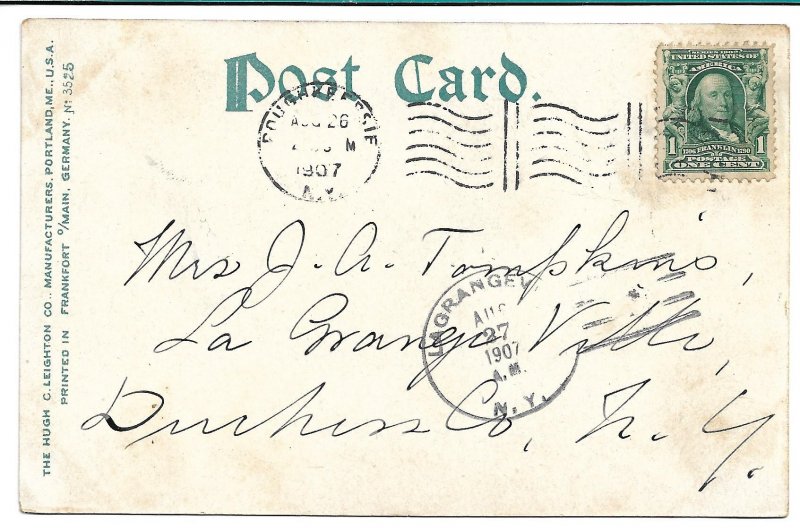 Post Card.
THE HUGH C. LEIGHTON CO., MANUFACTURERS, PORTLAND, ME., U.S.A.
PRINTED IN FRANKFORT o/MAIN, GERMANY. No 3525
POUGHKEEPSIE
AUG 26
M
1907
N.Y.
SERIES 1902
UNITED STATES OF
AMERICA
1706 FRANKLIN 1790
1 POSTAGE 1
ONE CENT
Mrs J. A. Tompkins,
La Grange Ville
Duchess Co, N. Y.
LAGRANGEV
AUG
27
1907
A.M.
N.Y.